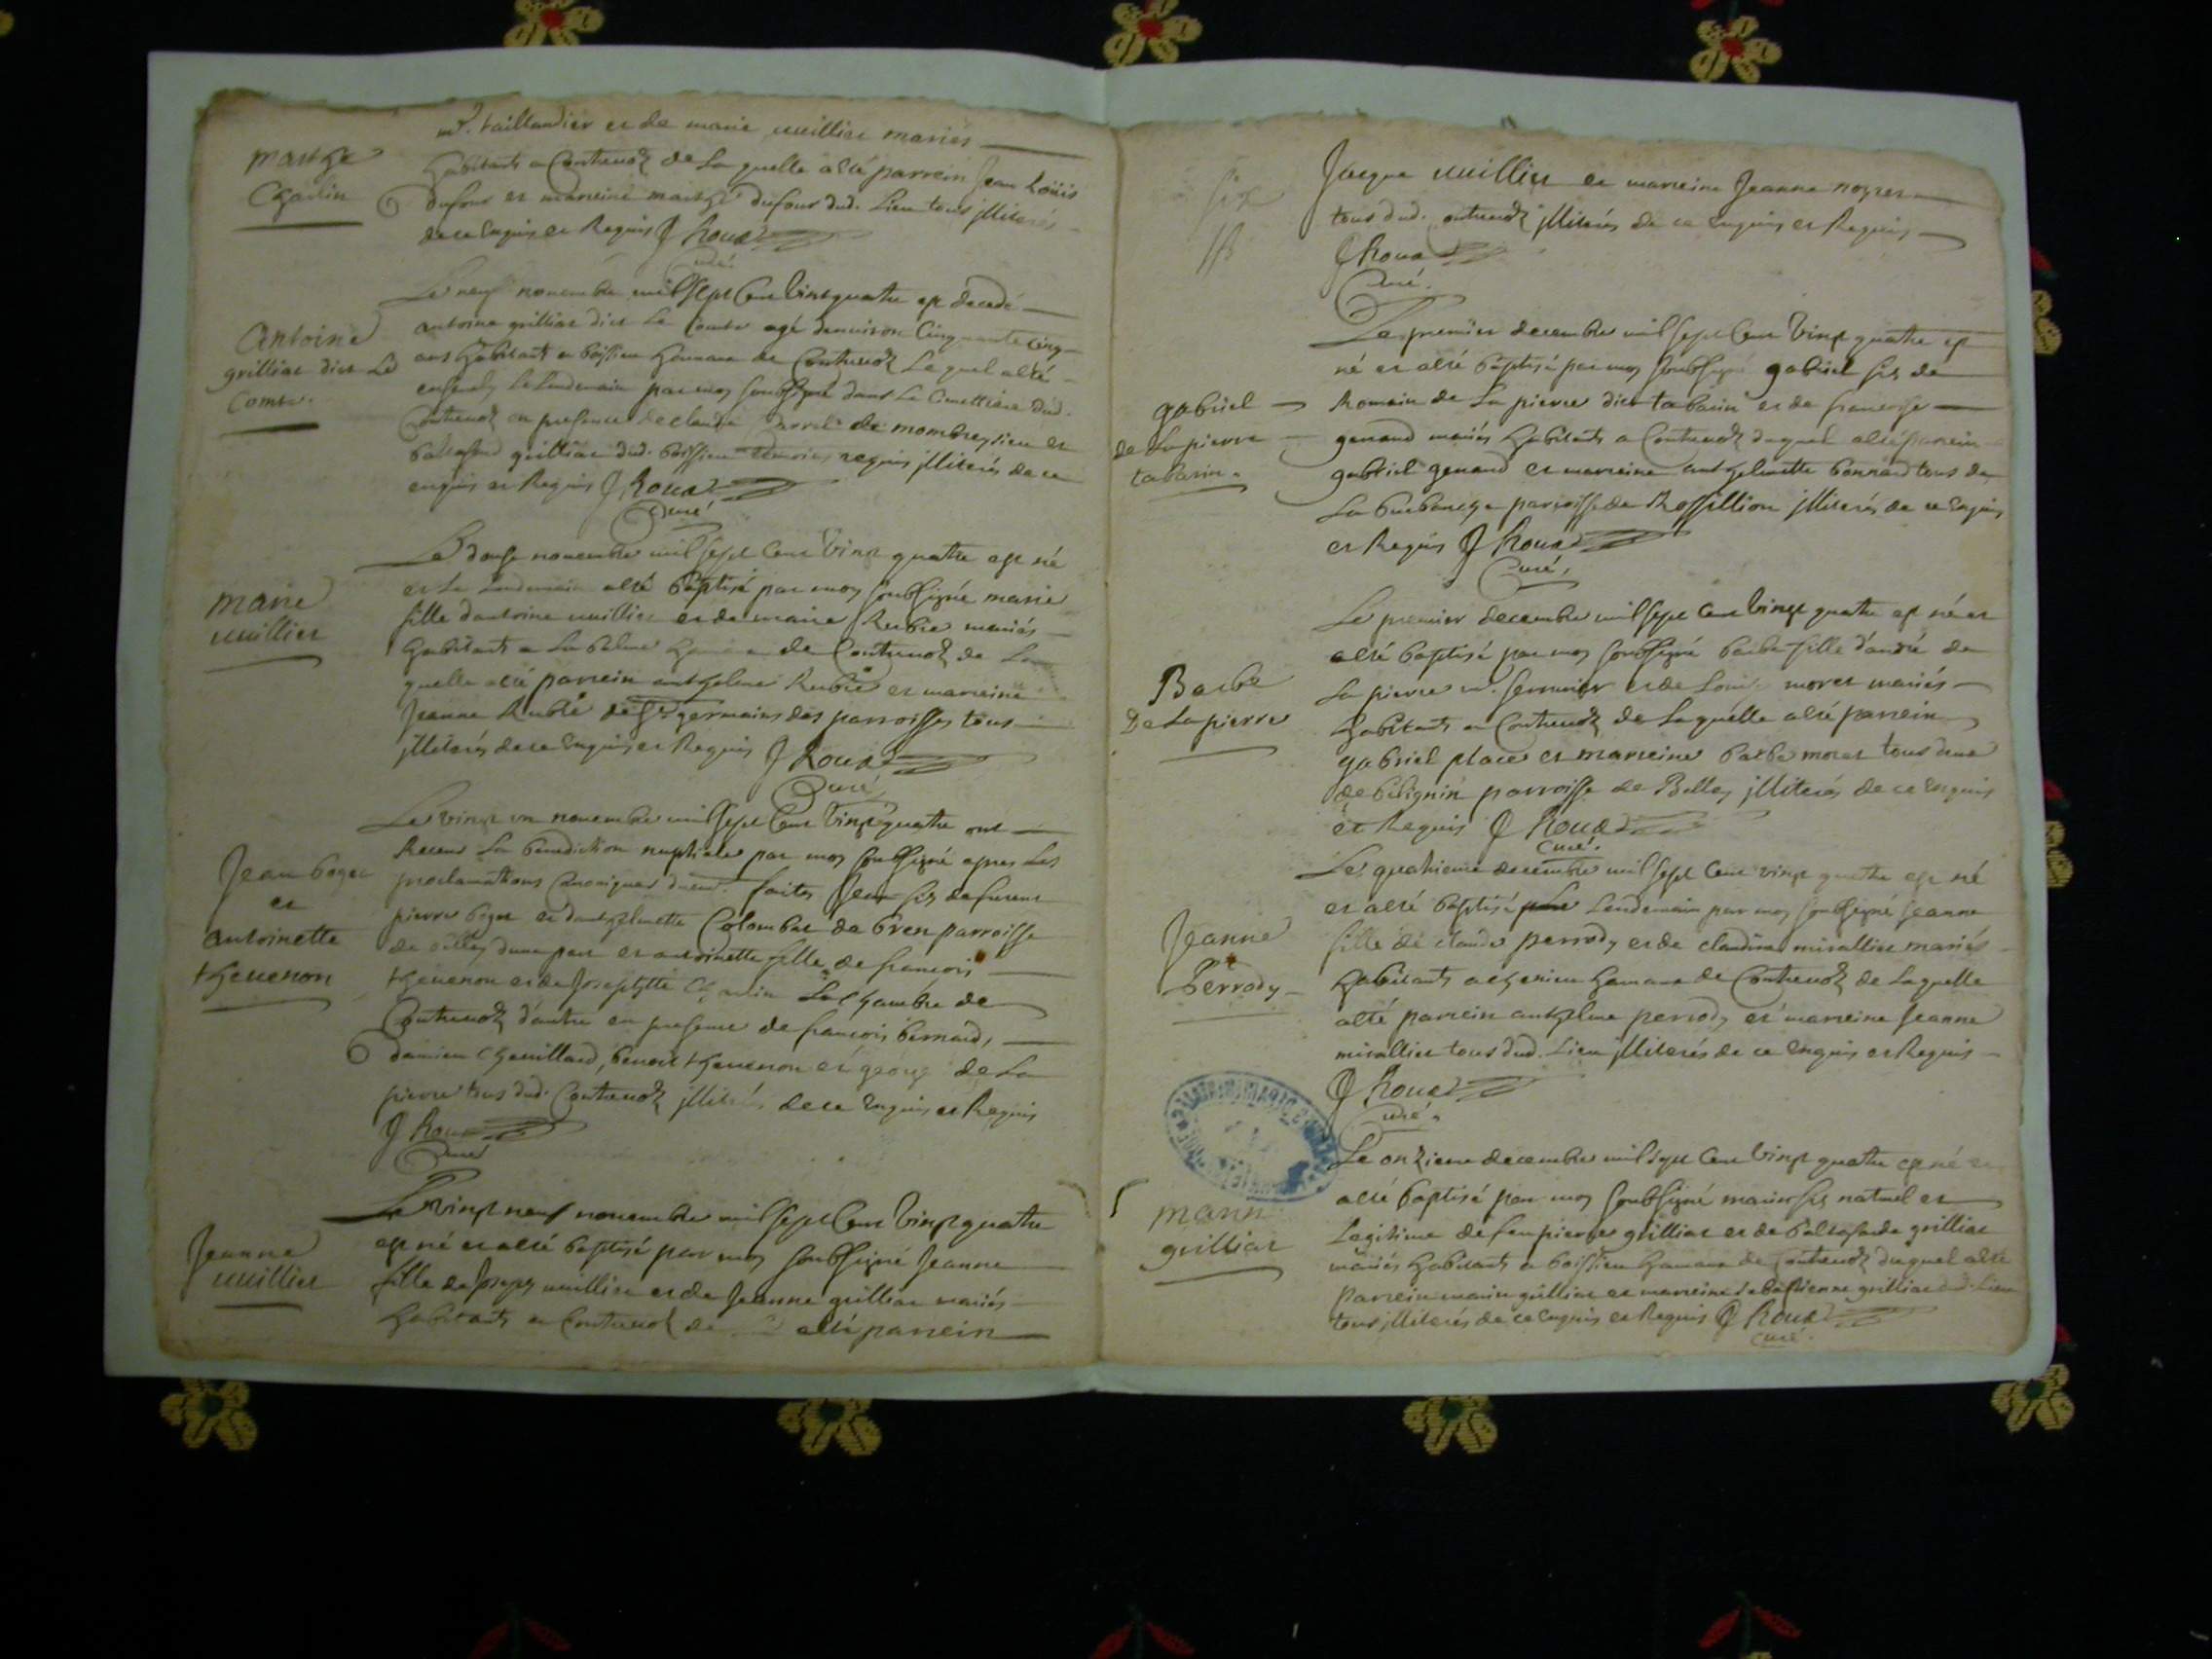 mᵉ. taillandier et de marie uuillier mariés
marthe
Charlin
habitants a Contreuoz de La quelle a été parrein Jean Loüis
dufour et marreine marthe dufour dud. Lieu tous jlliterés
de ce Enquis et Requis J Roux
Curé.
Antoine
grilliat dict Le
Comte.
Le neuf nouembre mil sept Cent Vint quatre est decedé
antoine grilliat dict Le Comte agé denuiron Cinquante cinq
ans habitant a boissieu hameau de Contreuoz Lequel a été
enseuely Le Lendemain par moy soubsigné dans Le Cimettiere dud.
Contreuoz en presence de claude de mombreysieu et
baltasard grilliat dud. boissieu temoins requis jlliterés de ce
enquis et Requis J Roux
Curé
marie
uuillier
Le douse nouembre mil sept Cent Vint quatre est né
et Le Lendemain a été baptisé par moy soubsigné marie
fille dantoine uuillier et de marie Rubie mariés
habitants a La balme de Contreuoz de La
quelle a été parrein anthelme Rubie et marreine
Jeanne Rubie de St germain des parroisses tous
jlliterés de ce Enquis et Requis J Roux
Curé
Jean boget
et
antoinette
theuenon
Le vint un nouembre mil sept Cent Vint quatre ont
Receus La benediction nuptiale par moy soubsigné apres Les
proclamations Canoniques duem. faites Jean fils defunct
pierre boget et danthelmette Colombet de bren parroisse
de belley dune part et antoinette fille de francois
theuenon et de Josephtte La Chambre de
Contreuoz d'autre en presence de francois bernard,
damien Cheuillard, benoit theuenon et george de La
pierre tous dud. Contreuoz jlliterés de ce Enquis et Requis
J Roux
Curé
Jeanne
uuillier
Le vint neuf nouembre mil sept Cent Vint quatre
est né et a été baptisé par moy soubsigné Jeanne
fille de Joseph uuillier et de Jeanne grilliat mariés
habitants a Contreuoz de a été parrein
Jacque uuillier et marreine Jeanne noyret
tous dud. Contreuoz jlliterés de ce Enquis et Requis
J Roux
Curé.
gabriel
de La pierre
tabarin.
Le premier decembre mil sept Cent Vint quatre est
né et a été baptisé par moy soubsigné gabriel fils de
Romain de La pierre dict tabarin et de francoise
genand mariés habitants a Contreuoz duquel a été parrein
gabriel genand et marreine anthelmette bonnard tous de
La burbanche parroisse de Rossillion jlliterés de ce Enquis
et Requis J Roux
Curé,
Barbe
De La pierre
Le premier decembre mil sept Cent Vingt quatre est né et
a été baptisé par moy soubsigné barbe fille d'andré de
La pierre mᵉ. serrurier et de Louise moret mariés
habitants a Contreuoz de Laquelle a été parrein
gabriel place et marreine barbe moret tous deux
de billignin parroisse de Belley jlliterés de ce Enquis
et Requis J Roux
Curé.
Jeanne
Perrody
Le quatrieme decembre mil sept Cent vint quatre est né
et a été baptisé Lendemain par moy soubsigné Jeanne
fille de claude perrody et de claudine mirallier mariés
habitants a chenieu hameau de Contreuoz de Laquelle
a été parrein anthelme perrody et marreine Jeanne
mirallier tous dud. Lieu jlliterés de ce Enquis et Requis
J Roux
Curé.
marin
grilliat
Le onzieme decembre mil sept Cent Vint quatre est né et
a été baptisé par moy soubsigné marin fils naturel et
Legitime de feu pierre grilliat et de baltasarde grilliat
mariés habitants a boissieu hameau de Contreuoz duquel a été
parrein marin grilliat et marreine sebastienne grilliat dud. Lieu
tous jlliterés de ce Enquis et Requis J Roux
Curé.